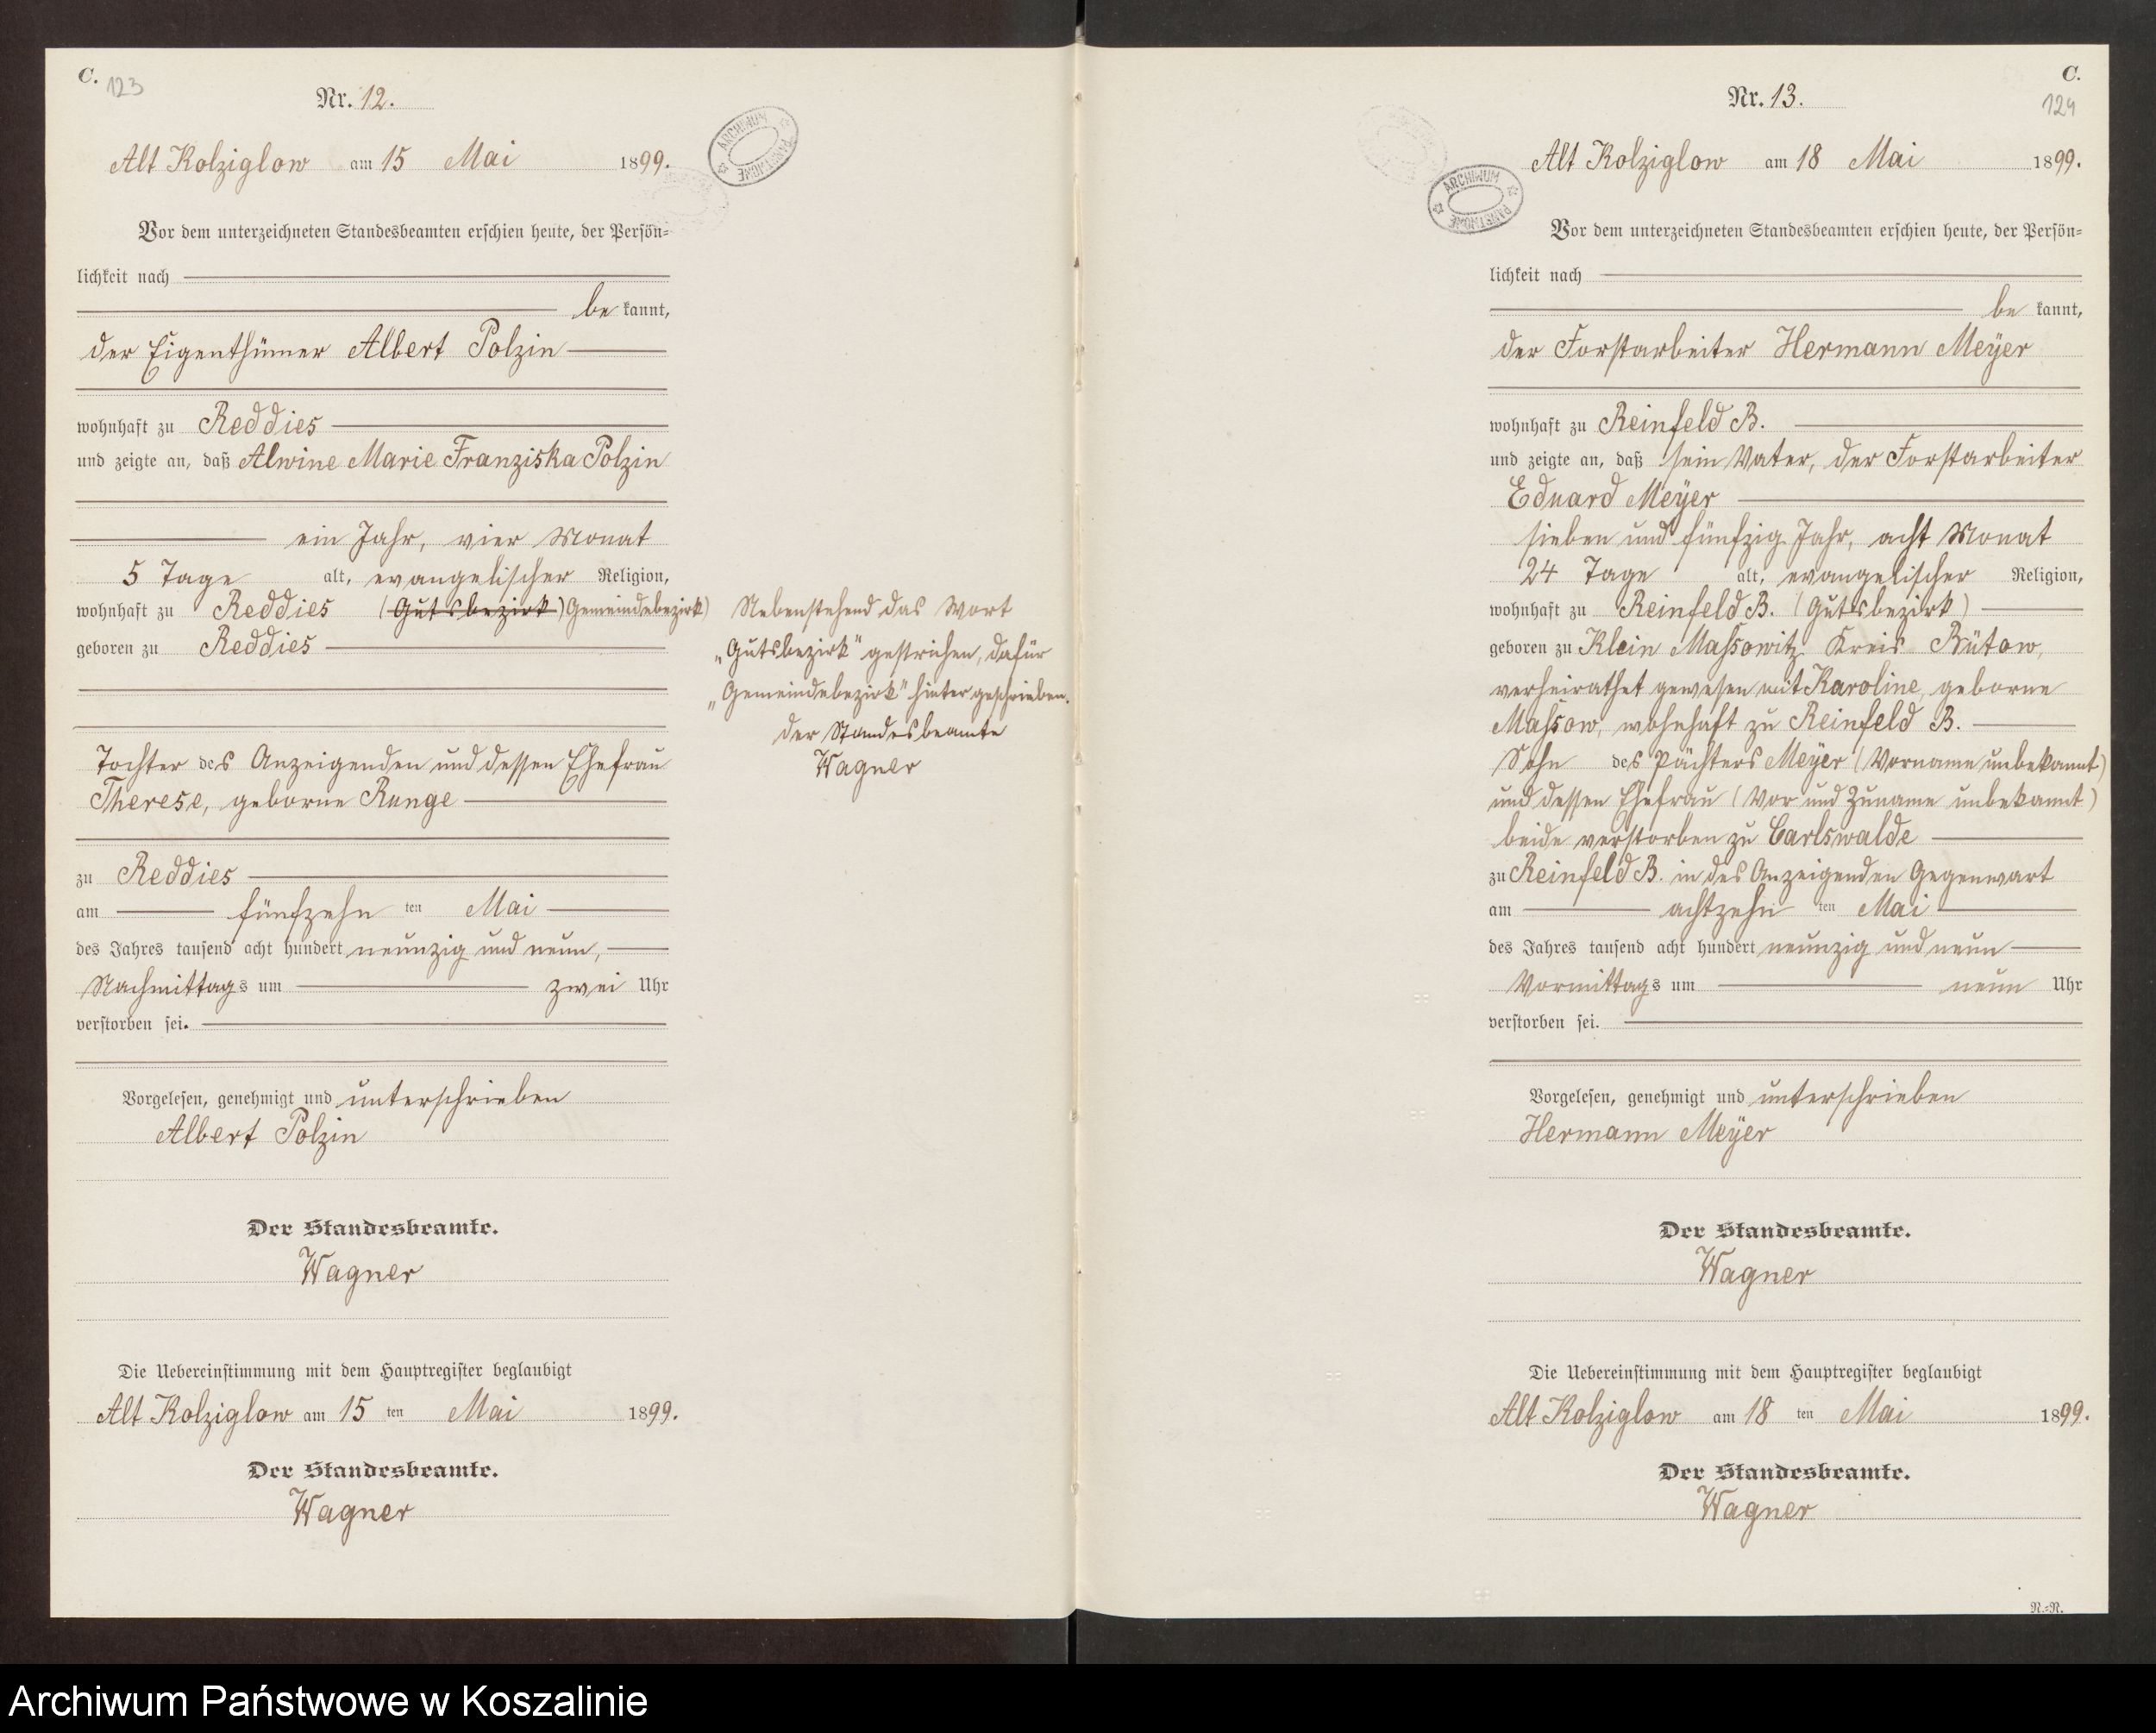 C. 123
Nr. 12.
Alt Kolziglow am 15 Mai 1899.
Vor dem unterzeichneten Standesbeamten erschien heute, der Persön-
lichkeit nach
be kannt,
der Eigenthümer Albert Polzin
wohnhaft zu Reddies
und zeigte an, daß Alwine Marie Franziska Polzin
ein Jahr, vier Monat
5 Tage alt, evangelischer Religion,
wohnhaft zu Reddies (Gutsbezirk) Gemeindebezirk)
geboren zu Reddies
Tochter des Anzeigenden und dessen Ehefrau
Therese, geborne Runge
zu Reddies
am fünfzehn ten Mai
des Jahres tausend acht hundert neunzig und neun,
Nachmittags um zwei Uhr
verstorben sei.
Vorgelesen, genehmigt und unterschrieben
Albert Polzin
Der Standesbeamte.
Wagner
Die Uebereinstimmung mit dem Hauptregister beglaubigt
Alt Kolziglow am 15 ten Mai 1899.
Der Standesbeamte.
Wagner
ARCHIWUM PAŃSTWOWE
Nebenstehend das Wort
„Gutsbezirk" gestrichen, dafür
„Gemeindebezirk" hinter geschrieben.
der Standesbeamte
Wagner
C.
124
Nr. 13.
ARCHIWUM PAŃSTWOWE
Alt Kolziglow am 18 Mai 1899.
Vor dem unterzeichneten Standesbeamten erschien heute, der Persön-
lichkeit nach
be kannt,
der Forstarbeiter Hermann Meÿer
wohnhaft zu Reinfeld B.
und zeigte an, daß sein Vater, der Forstarbeiter
Eduard Meÿer
sieben und fünfzig Jahr, acht Monat
24 Tage alt, evangelischer Religion,
wohnhaft zu Reinfeld B. (Gutsbezirk)
geboren zu Klein Massowitz Kreis Bütow,
verheirathet gewesen mit Karoline, geborne
Massow, wohnhaft zu Reinfeld B.
Sohn des Pächters Meÿer (Vorname unbekannt)
und dessen Ehefrau (Vor und Zuname unbekannt)
beide verstorben zu Carlswalde
zu Reinfeld B. in des Anzeigenden Gegenwart
am achtzehn ten Mai
des Jahres tausend acht hundert neunzig und neun
Vormittags um neun Uhr
verstorben sei.
Vorgelesen, genehmigt und unterschrieben
Hermann Meÿer
Der Standesbeamte.
Wagner
Die Uebereinstimmung mit dem Hauptregister beglaubigt
Alt Kolziglow am 18 ten Mai 1899.
Der Standesbeamte.
Wagner
R.-R.
Archiwum Państwowe w Koszalinie